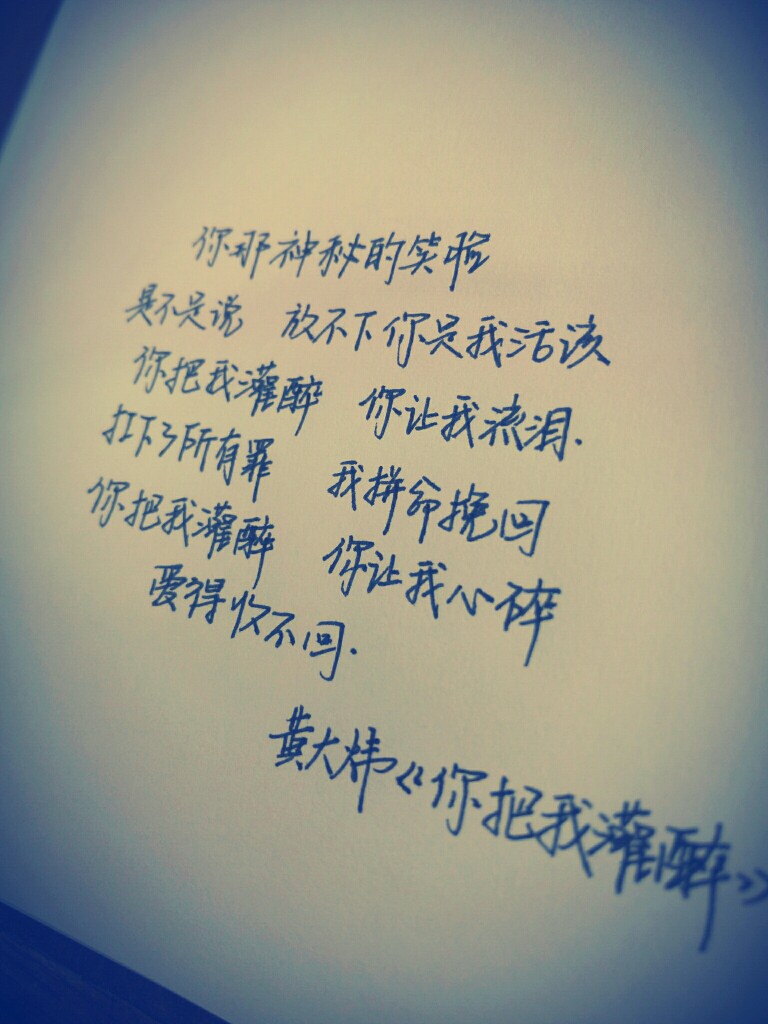 你那神秘的笑脸
是不是说 放不下你是我活该
你把我灌醉 你让我流泪.
扛下了所有罪 我拼命挽回
你把我灌醉 你让我心碎
爱得收不回.
黄大炜《你把我灌醉》